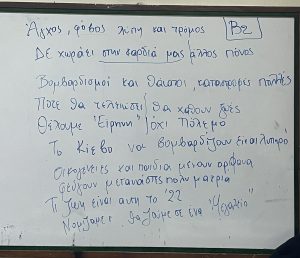 Άγχος, φόβος λύπη και τρόμος
B2
ΔΕ χωράει στην καρδιά μας άλλος πόνος
Βομβαρδισμοί και θάνατοι, καταστροφές πολλές
Πότε θα τελειώσει θα χαθούν ζωές
Θέλουμε "Ειρήνη" όχι Πόλεμο
Το Κίεβο να βομβαρδίζουν είναι λυπηρό
Οικογένειες και παιδιά μένουν ορφανά
Φεύγουν μετανάστες πολύ μακριά
Τι ζωή είναι αυτή το '22
Νομίζαμε θα ζούμε σε ένα "Μεγαλείο"